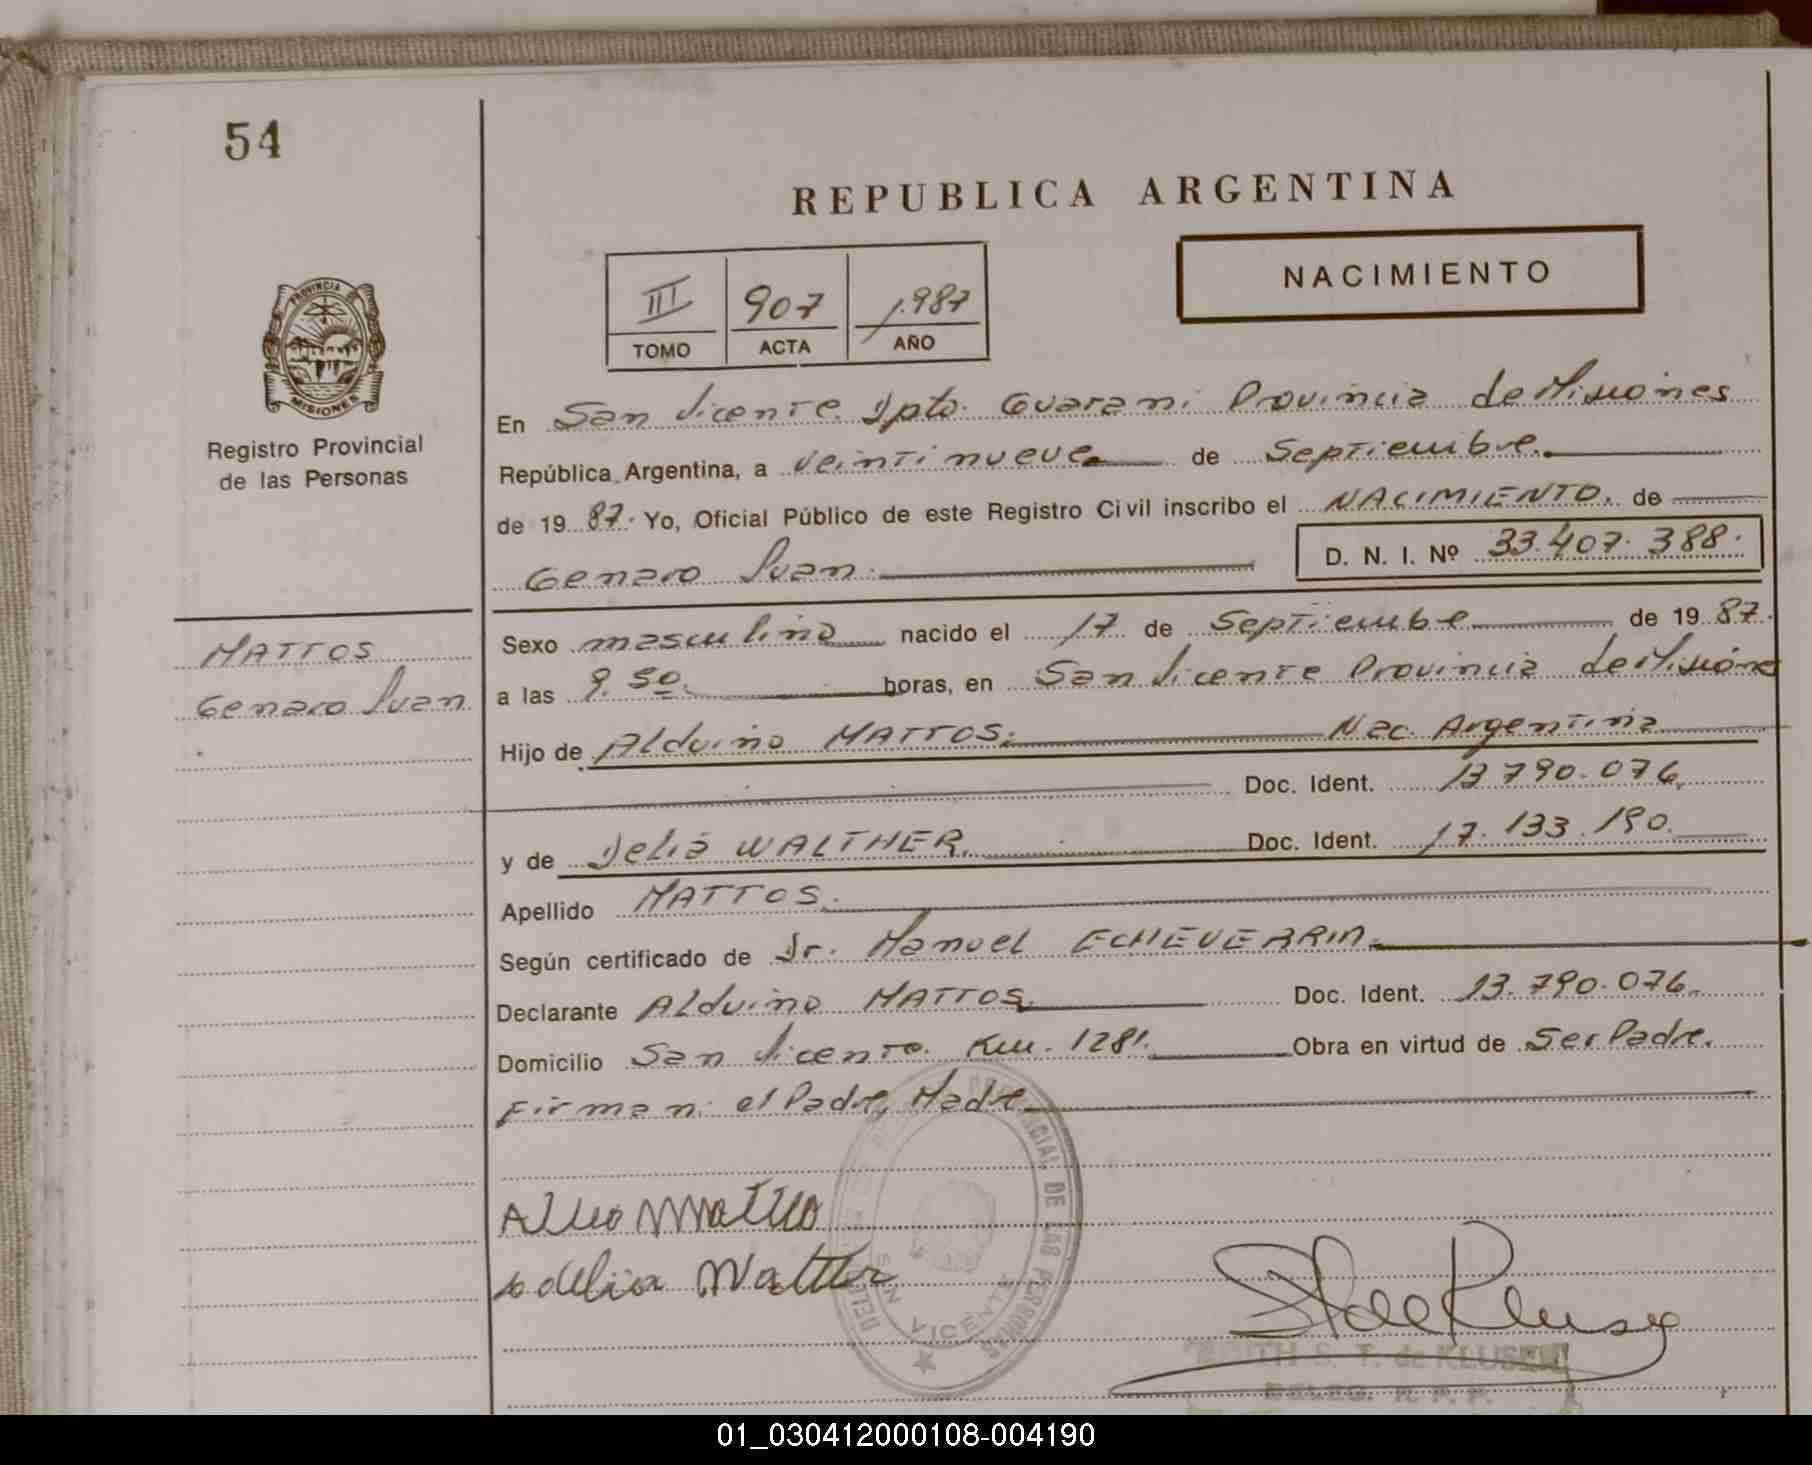 54
REPUBLICA ARGENTINA
NACIMIENTO
III 907 1.987
TOMO ACTA AÑO
PROVINCIA
MISIONES
Registro Provincial
de las Personas
En San Vicente Dpto. Guarani Provincia de Misiones
República Argentina, a veintinueve de Septiembre.
de 19 87. Yo, Oficial Público de este Registro Civil inscribo el NACIMIENTO. de
Genaro Juan. D. N. I. Nº 33.407.388.
MATTOS
Genaro Juan
Sexo masculino nacido el 17 de Septiembre de 19 87.
a las 9.50. horas, en San Vicente Provincia de Misiones
Hijo de Alduino MATTOS. Nac. Argentina
Doc. Ident. 13.790.076.
y de Delia WALTHER. Doc. Ident. 17.133.190.
Apellido MATTOS.
Según certificado de Dr. Manuel ECHEVERRIA.
Declarante Alduino MATTOS. Doc. Ident. 13.790.076.
Domicilio San Vicente. Km. 1281. Obra en virtud de Ser Padre.
Firman: el Padre, Madre
DE LAS PERSONAS
SAN VICENTE
S. T. de KLUSEN
DELEG. R. P. P.
01_030412000108-004190